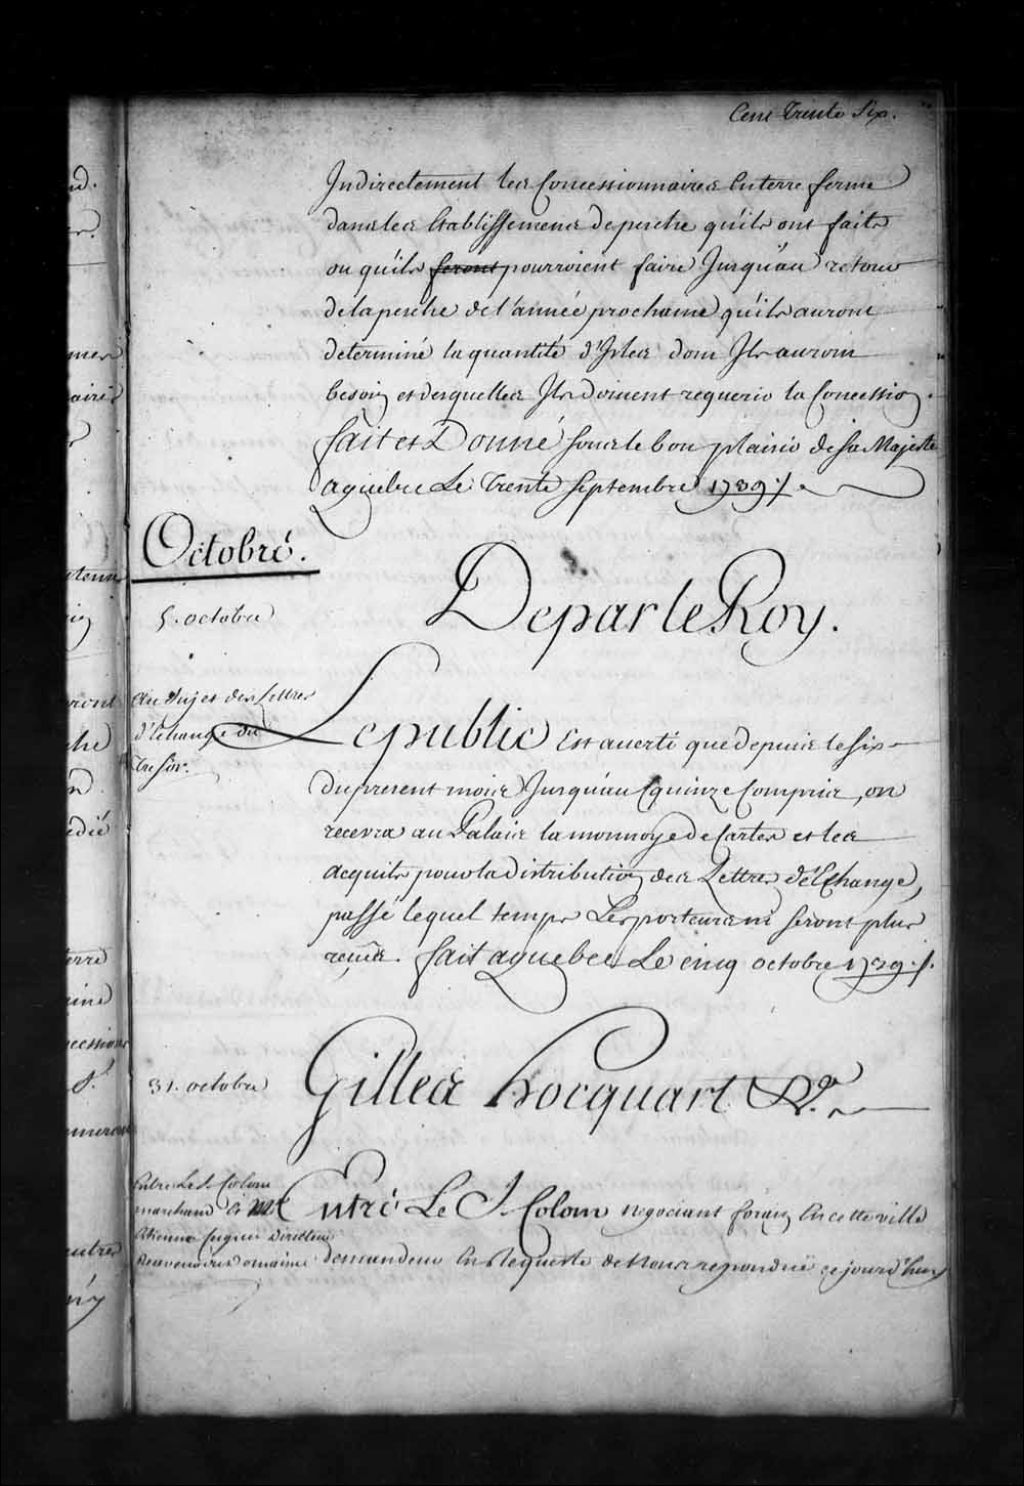 Cent Trente Six.
Indirectement les Concessionnaires En terre ferme
dans les Etablissemens de pesche qu'ils ont faits
ou qu'ils seront pourroient faire Jusqu'au retour
de la pesche de l'année prochaine qu'ils auront
determiné la quantité d'Isles dont Ils auront
besoin et desquelles Ils doivent requerir la Concession.
fait et Donné sous le bon plaisir de sa Majesté
a quebec Le Trente Septembre 1739 ./.
Octobre.
5. octobre
De par le Roy.
Au Sujet des Lettres
d'Echange du
Tresor.
Le public Est averti que depuis le six
du present mois Jusqu'au quinze Compris, on
recevra au Palais la monnoye de Cartes et les
acquits pour la distribution des Lettres d'Echange,
passé lequel temps Les porteurs ne seront plus
reçus. fait a quebec Le cinq octobre 1739 ./.
31. octobre
Gilles hocquart &a.
Entre Le S. Colom
marchand & Mr
Etienne Cugnet Directeur
Du Domaine
Entre Le S. Colom negociant forain En cette ville
demandeur En Requeste de Nous repondue ce jourd'huy